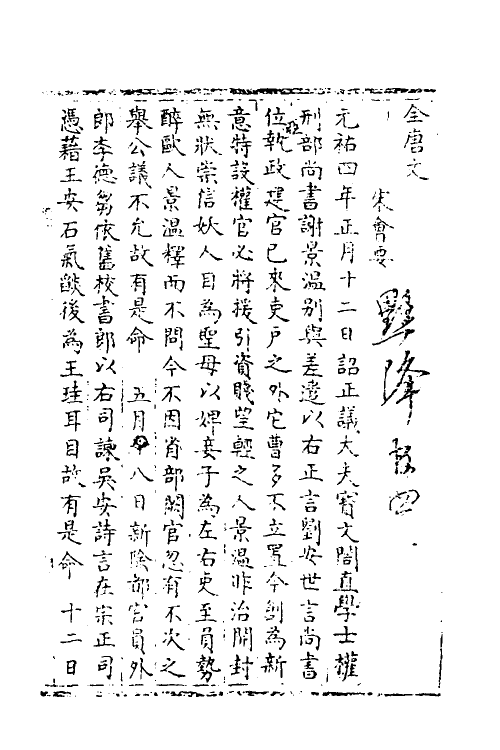 全唐文
宋會要
黜降
四
元祐四年正月十二日詔正議大夫寳文閣直學士權
刑部尚書謝景温别與差遣以右正言劉安世言尚書
位亞執政建官已來吏戶之外它曹多不立置今創為新
意特設權官必將援引資賤望輕之人景温昨治開封
無狀崇信妖人目為聖母以婢妾子為左右吏至員勢
醉歐人景温釋而不問今不因省部闕官忽有不次之
舉公議不允故有是命 五月八日新除都官員外
郎李德芻依舊校書郎以右司諫吳安詩言在宗正司
憑藉王安石氣燄後為王珪耳目故有是命 十二日